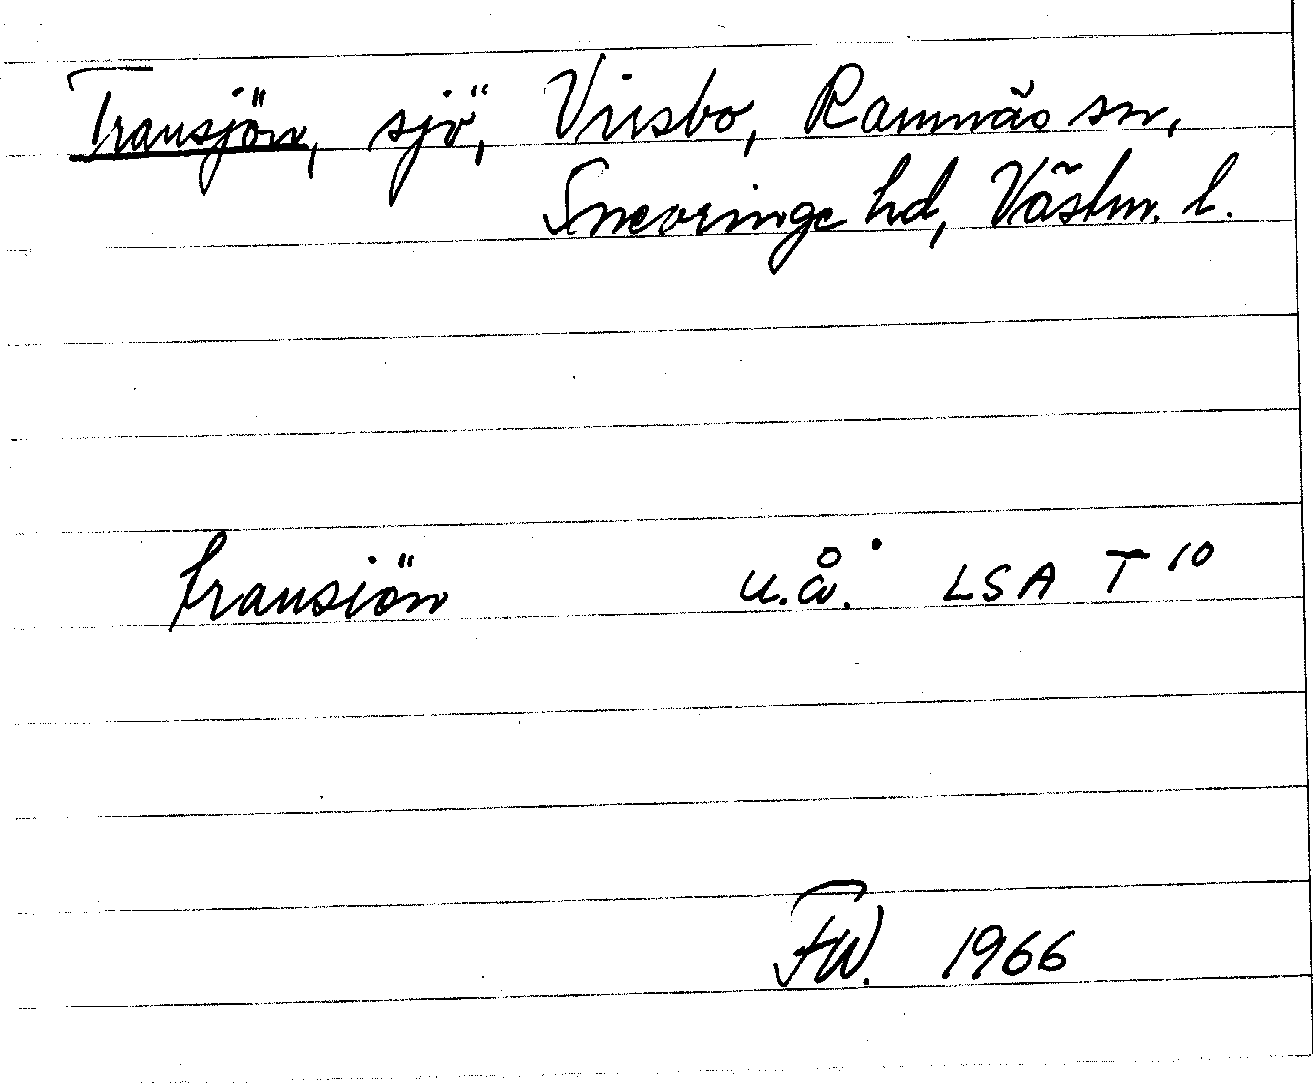 Transjön, sjö, Virsbo, Ramnäs sn,
Snevringe hd, Västm. l.
transiön u.å. LSA T 10
FW. 1966